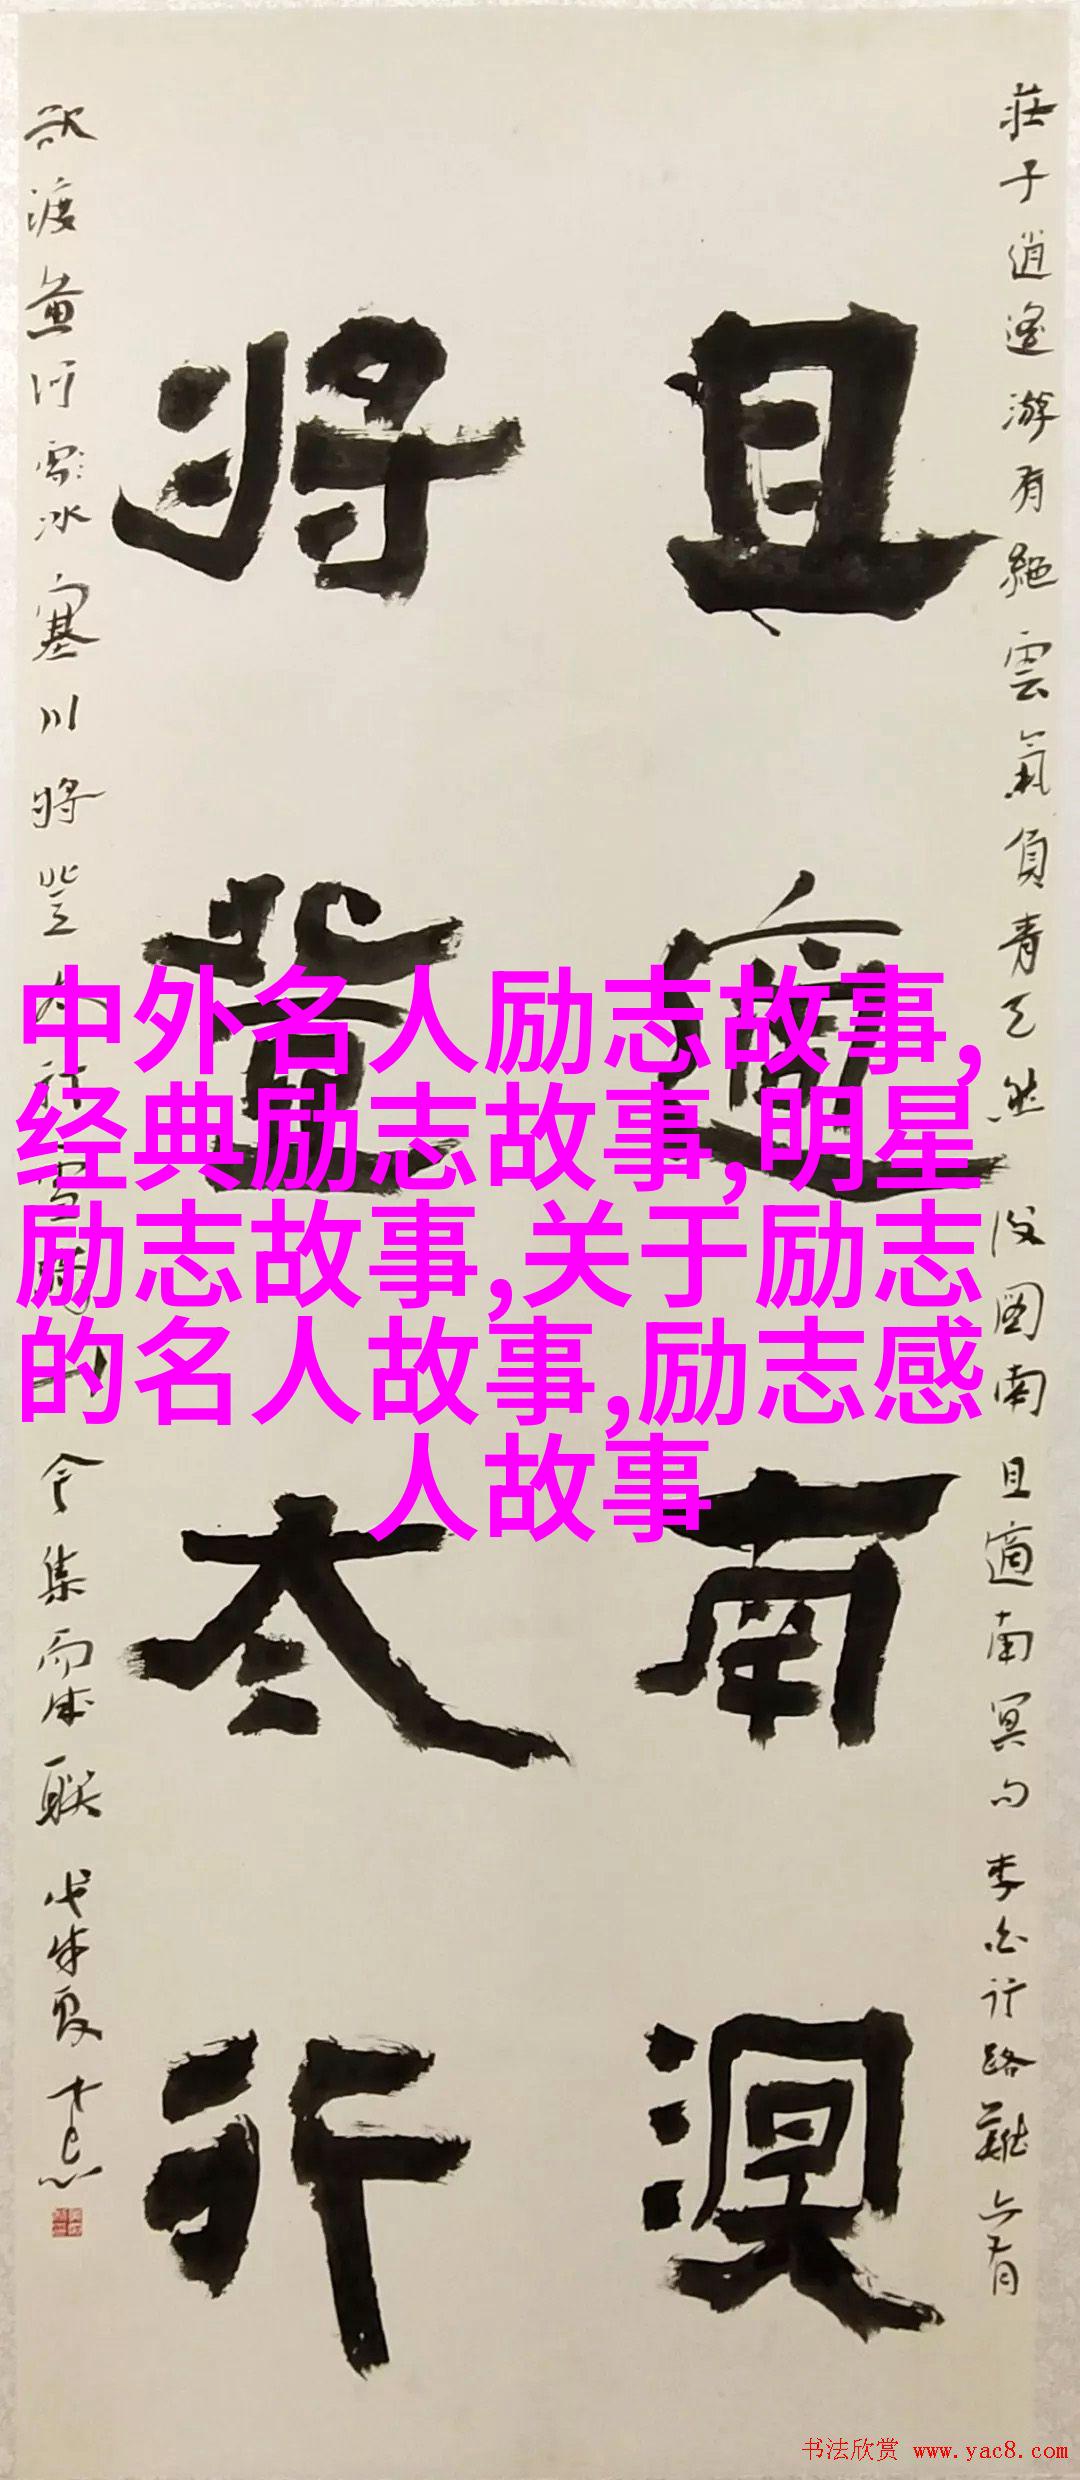 莊子逍遙游有絕雲氣負青天然後圖南且適南冥句李白行路難亦有
且適南溟
將登太行
欲渡黃河冰塞川將登太行雪
今集而成聯戊戌夏
中外名人励志故事,
经典励志故事,明星
励志故事,关于励志
的名人故事,励志感
人故事
书法欣赏 www.yac8.com